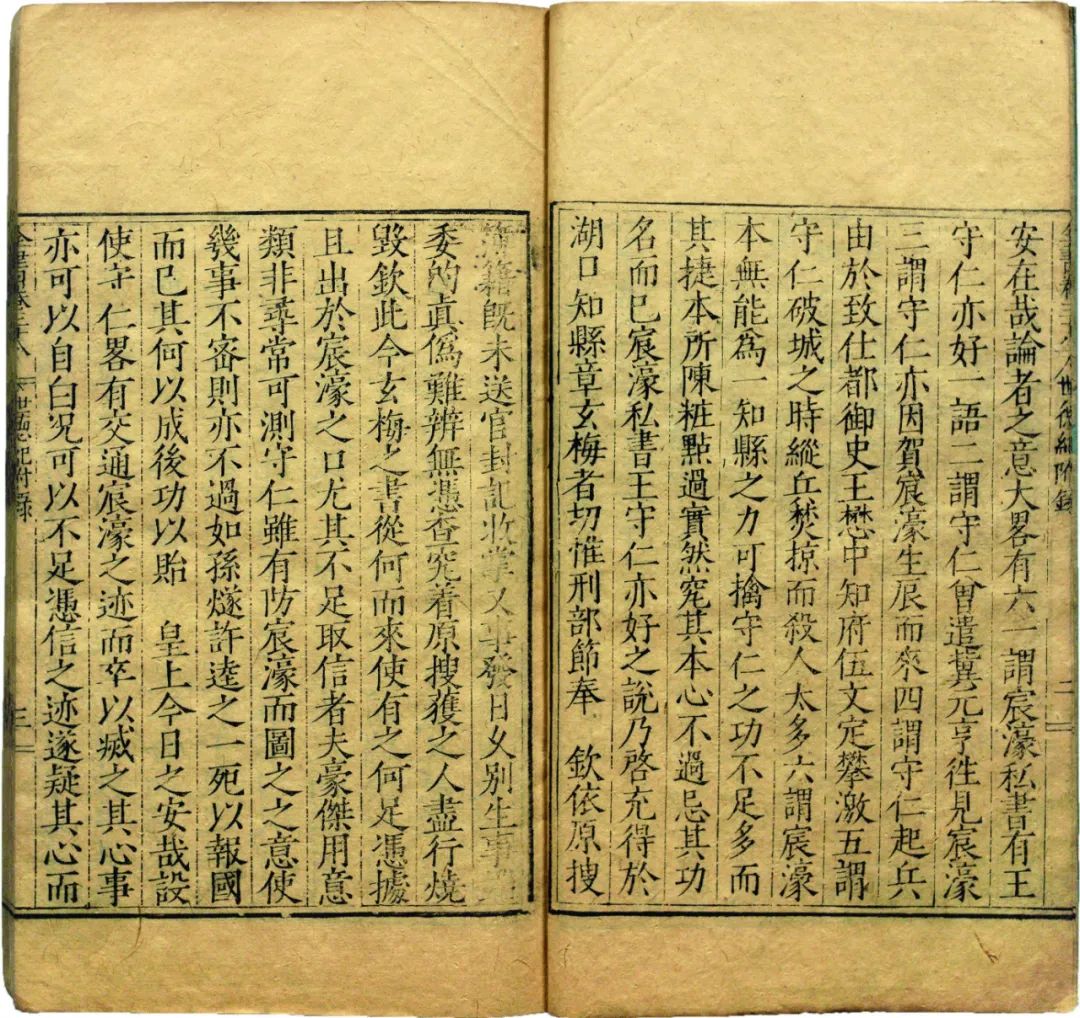 全書卷之三十八 世德紀附錄 二
安在哉論者之意大畧有六一謂宸濠私書有王
守仁亦好一語二謂守仁曾遣冀元亨徃見宸濠
三謂守仁亦因賀宸濠生辰而來四謂守仁起兵
由於致仕都御史王懋中知府伍文定攀激五謂
守仁破城之時縱兵焚掠而殺人太多六謂宸濠
本無能爲一知縣之力可擒守仁之功不足多而
其捷本所陳粧點過實然究其本心不過忌其功
名而已宸濠私書王守仁亦好之說乃啓充得於
湖口知縣章玄梅者切惟刑部節奉 欽依原搜
簿籍旣未送官封記收掌又事發日久別生事
委的眞僞難辨無憑查究着原搜獲之人盡行燒
毀欽此今玄梅之書從何而來使有之何足憑據
且出於宸濠之口尤其不足取信者夫豪傑用意
類非尋常可測守仁雖有防宸濠而圖之之意使
幾事不審則亦不過如孫燧許逵之一死以報國
而已其何以成後功以貽 皇上今日之安哉設
使守仁畧有交通宸濠之迹而卒以㓕之其心事
亦可以自白况可以不足憑信之迹遂疑其心而
全書卷三十八 世德紀附錄 三